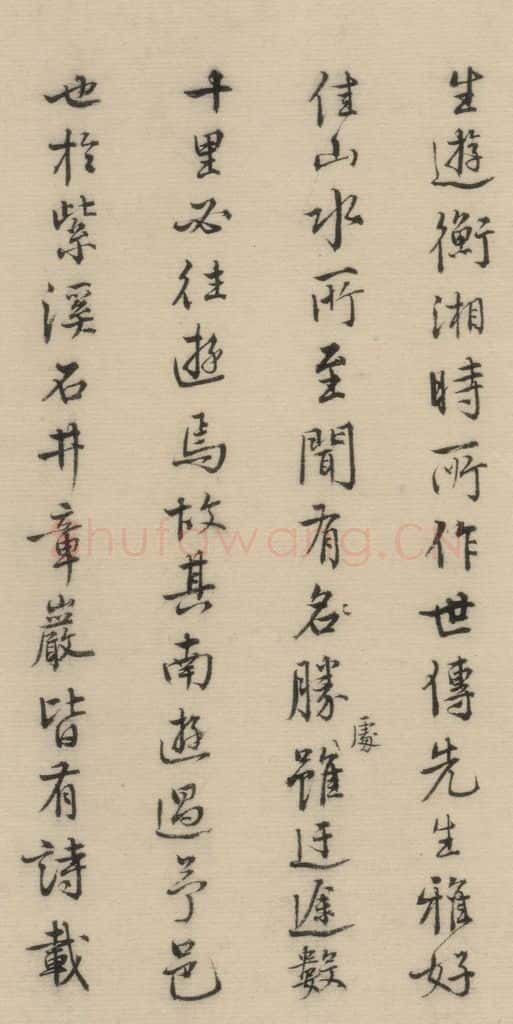 生遊衡湘時所作世傳先生雅好
佳山水所至聞有名勝處雖迂途數
十里必往遊焉故其南遊過予邑
也於紫溪石井章巖皆有詩載
shufawang.CN